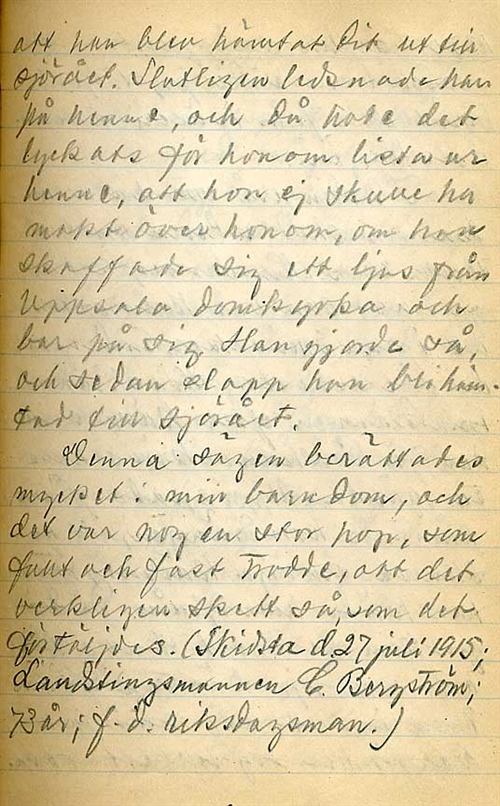 att han blev hämtat dit ut till
sjörået. Slutligen ledsnade han
på henne, och då hade det
lyckats för honom lista ur
henne, att hon ej skulle ha
makt över honom, om han
skaffade sig ett ljus från
Uppsala domkyrka och
bar på sig. Han gjorde så,
och sedan slapp han bli häm-
tad till sjörået.
Denna sägen berättades
mycket i min barndom, och
det var nog en stor hop, som
fullt och fast trodde, att det
verkligen skett så, som det
förtäljdes. (Skidsta d. 27 juli 1915;
Landstingsmannen C. Bergström;
73 år; f. d. riksdagsman.)